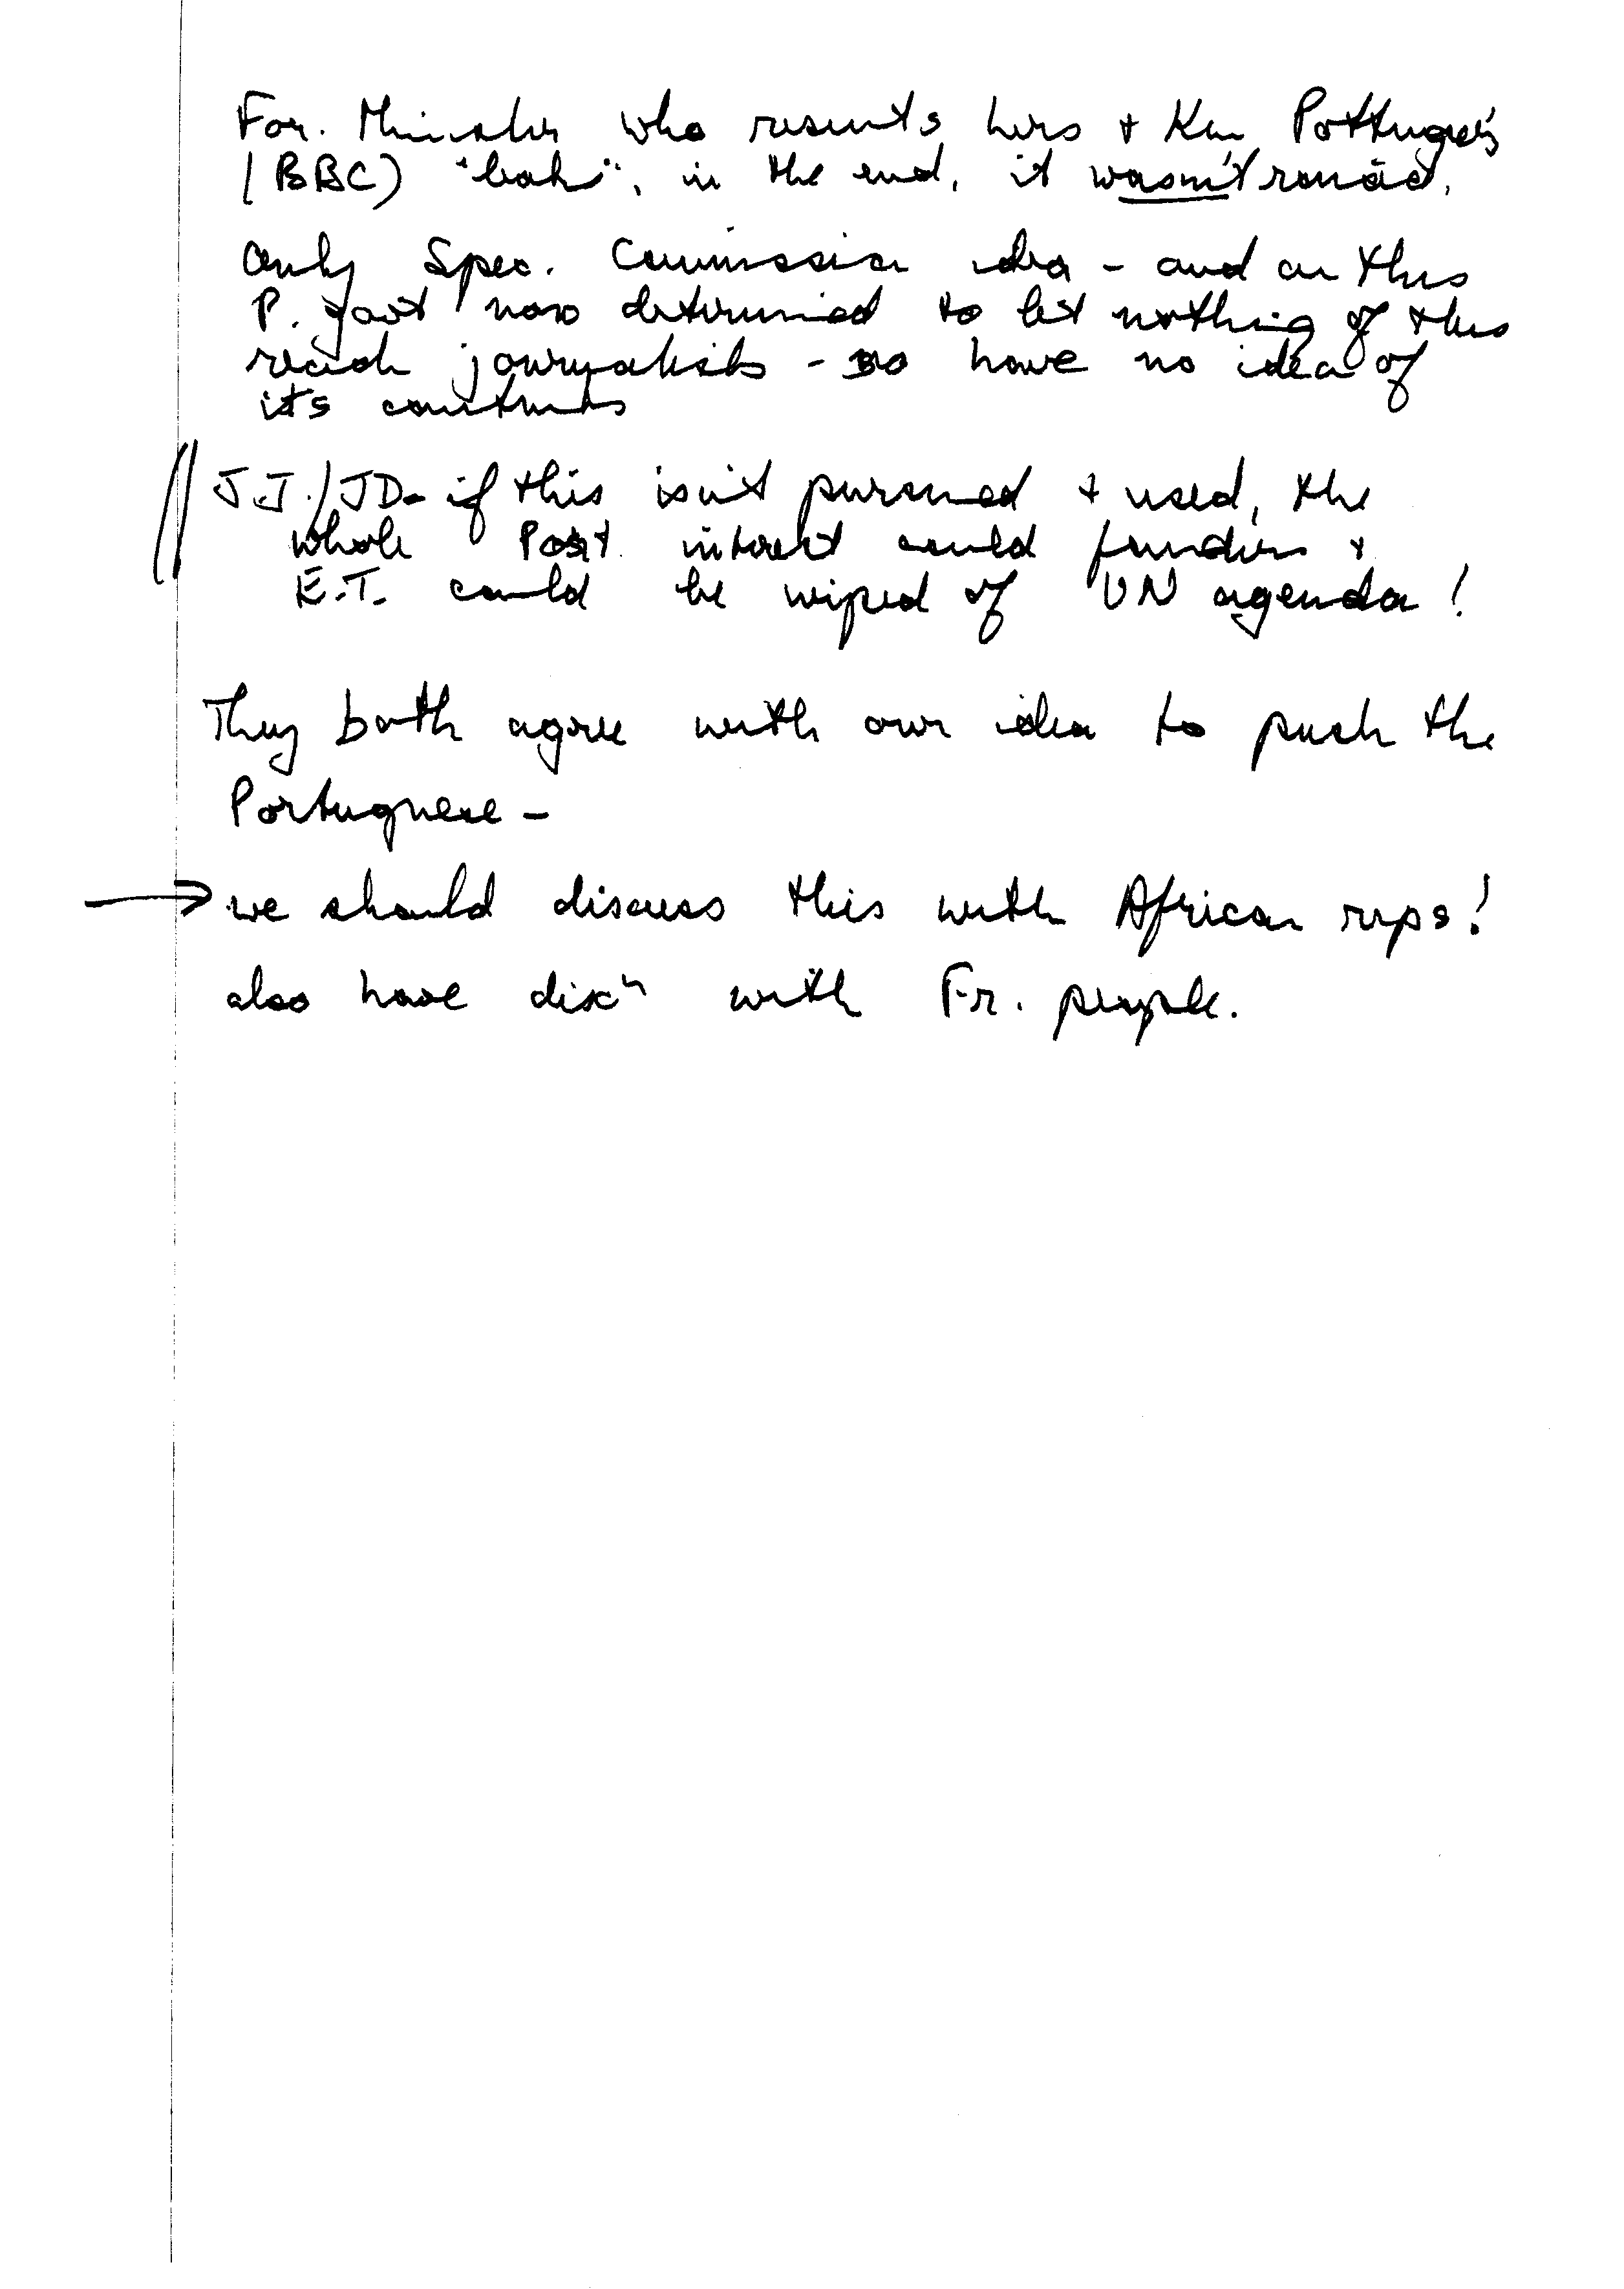 For. Minister who resents hers + Ken Pottinger's
(BBC) "leaks", in the end, it wasn't raised.
Only Spec. Commission idea - and on this
P. govt now determined to let nothing of this
reach journalists - so have no idea of
its contents
J.J./JD- if this isn't pursued + used, the
whole Port. interest could founder +
E.T. could be wiped of UN agenda!
They both agree with our idea to push the
Portuguese -
→ we should discuss this with African reps!
also have discn with Fr. people.